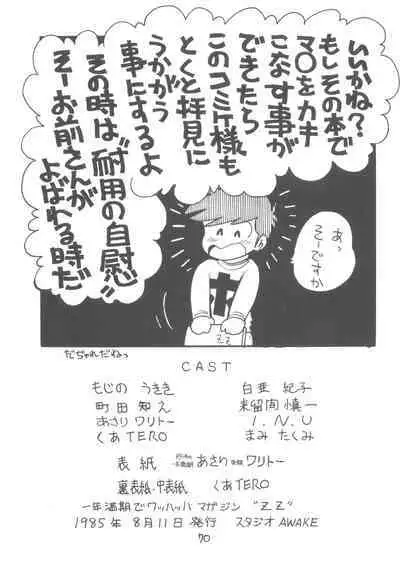 いいかね?
もしその本で
マ〇をカキ
こなす事が
できたら
このコミケ様も
とくと拝見に
うかがう
事にするよ
その時は〝耐用の自慰〟
そーお前さんが
よばれる時だ
あっ
そーですか
だじゃれだねっ
CAST
もじの うきき
白亜 紀子
町田 知え
来留間 慎一
あさりワリトー
I.N.U
くあTERO
まみ たくみ
表紙 あさりワリトー
裏表紙・中表紙 くあTERO
一年満期でワッハッハ マガジン "ZZ"
1985年 8月11日 発行 スタジオ AWAKE
70